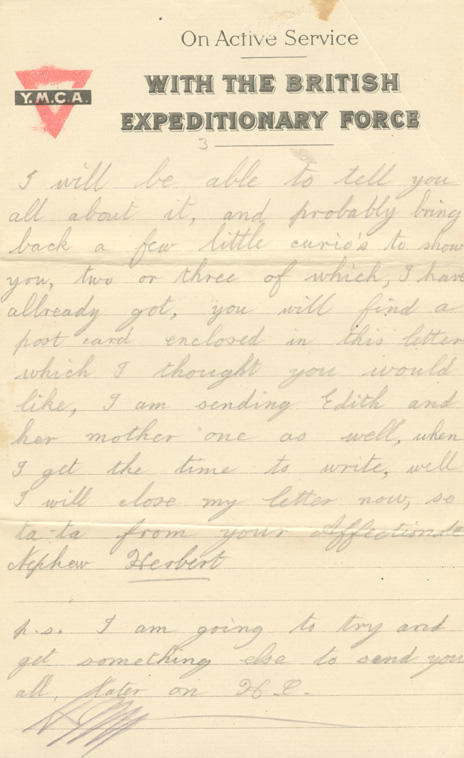 On Active Service
Y.M.C.A.
WITH THE BRITISH
EXPEDITIONARY FORCE
3
I will be able to tell you
all about it, and probably bring
back a few little curio's to show
you, two or three of which, I have
allready got, you will find a
post card enclosed in this letter
which I thought you would
like, I am sending Edith and
her mother one as well, when
I get the time to write, well
I will close my letter now, so
ta-ta from your Affectionate
Nephew Herbert
p.s. I am going to try and
get something else to send you
all, later on H.C.